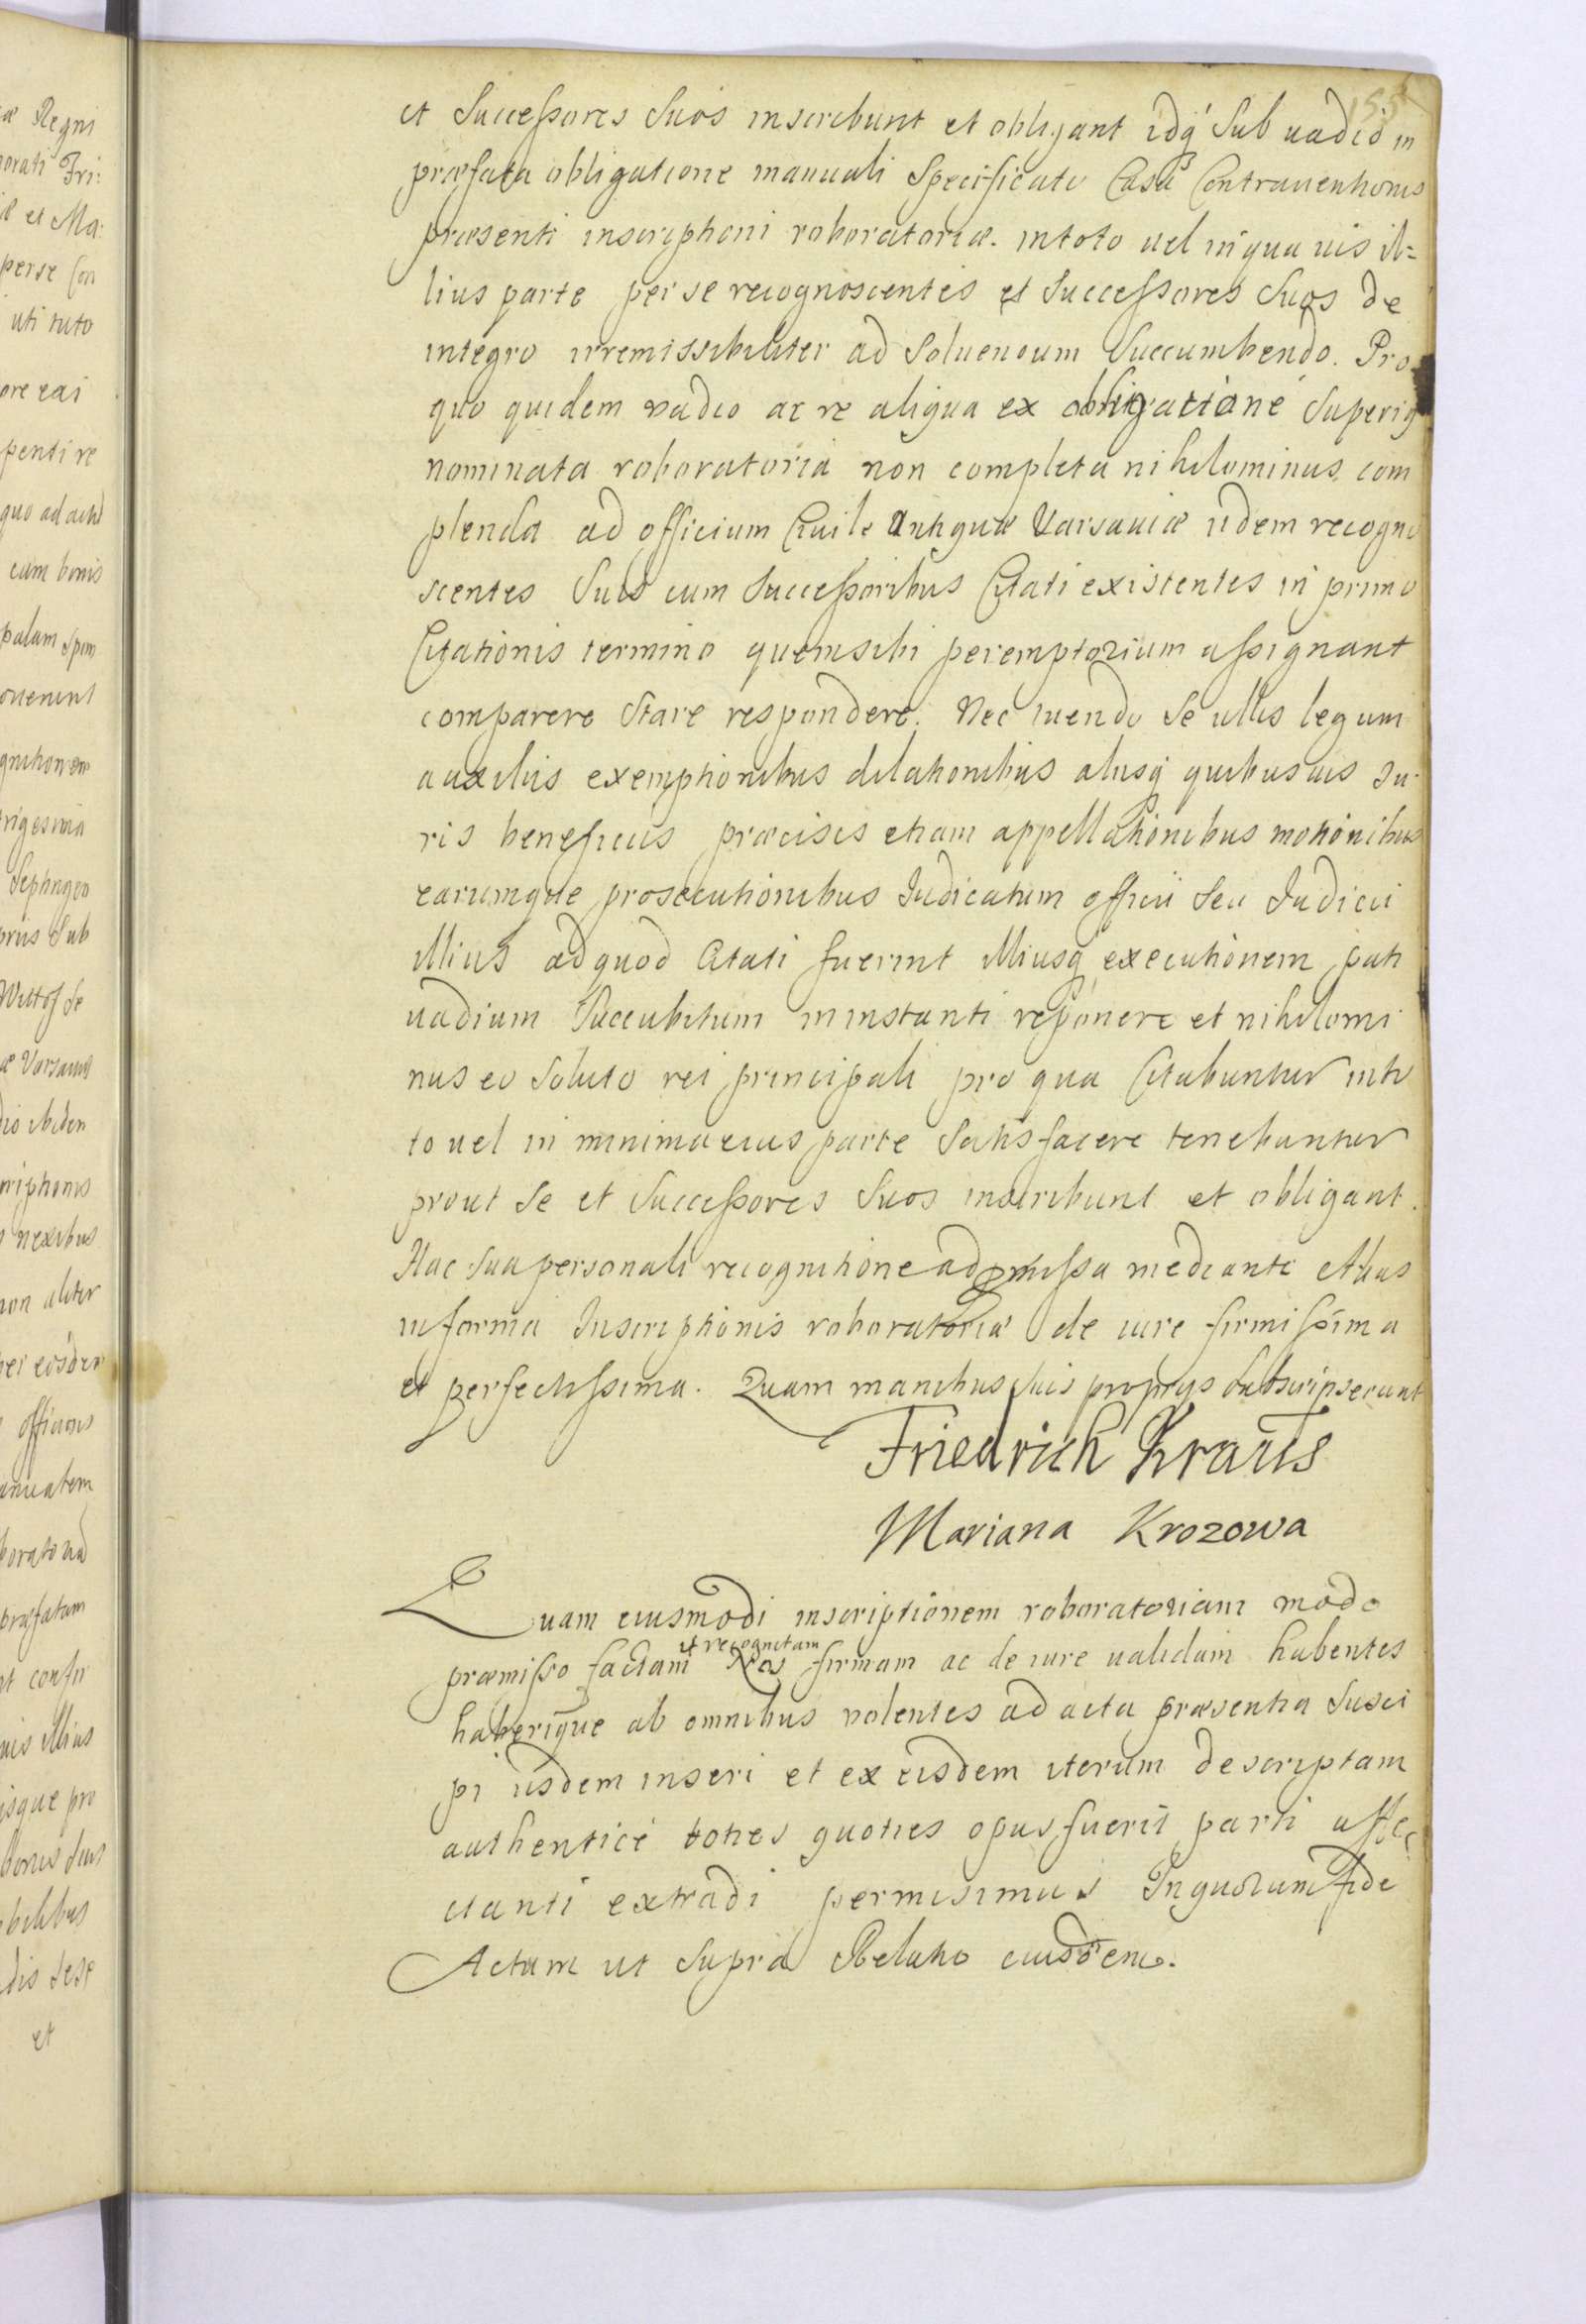 155
et Successores Suos inscribunt et obligant idq́ Sub vadio in
præfata obligatione manuali Specificato Casu Contrauentionis
præsenti inscriptioni roboratoriæ. in toto uel in qua uis il=
lius parte per se recognoscentes et Successores Suos de
integro irremissibiliter ad Soluendum Succumbendo. Pro
quo quidem vadio ac re aliqua ex obligatione Superiq
nominata roboratoria non completa nihilominus com
plenda ad officium Ciuile Antiquæ Varsauiæ iidem recogno
scentes Suis cum Successoribus Citati existentes in primo
Citationis termino quem sibi peremptorium assignant
comparere Stare respondere. Nec tuendo Se ullis legum
auxiliis exemptionibus dilationibus aliisq́ quibusuis Iu
ris beneficiis præcisis etiam appellationibus motionibus
earumque prosecutionibus Iudicatum officii Seu Iudicii
illius ad quod Citati fuerint illiusq́ executionem pati
uadium Succubitum in instanti reponere et nihilomi
nus eo Soluto rei principali pro qua Citabuntur in to
to uel in minima eius parte Satisfacere tenebuntur
prout Se et Successores Suos inscribunt et obligant.
Hac sua personali recognitione ad præmissa mediante
in forma Inscriptionis roboratoriæ de iure firmissima
et perfectissima. Quam manibus suis proprys Subscripserunt
Friedrich Kraus
Mariana Krozowa
Quam eiusmodi inscriptionem roboratoriam modo
et recognitam
præmisso factam Nos firmam ac de iure ualidam habentes
haberique ab omnibus volentes ad acta præsentia Susci
pi iisdem inseri et ex eisdem iterum descriptam
authenticè toties quoties opus fuerit parti affe
ctanti extradi permisimus In quorum fide
Actum ut Supra Relatio eiusdem.
æ Regni
norati Fri:
æ et Ma:
perse Con
uti tuto
ore rai
penti re
quo ad actu
cum bonis
palam Spon
ouenerunt
gnitionem
trigesima
Septingen
priis Sub
æ Varsauiæ
dio ibidem
criptionis
nexibus
non aliter
per eosdem
præfatam
uis illius
isque pro
bonis suis
dis sese
et